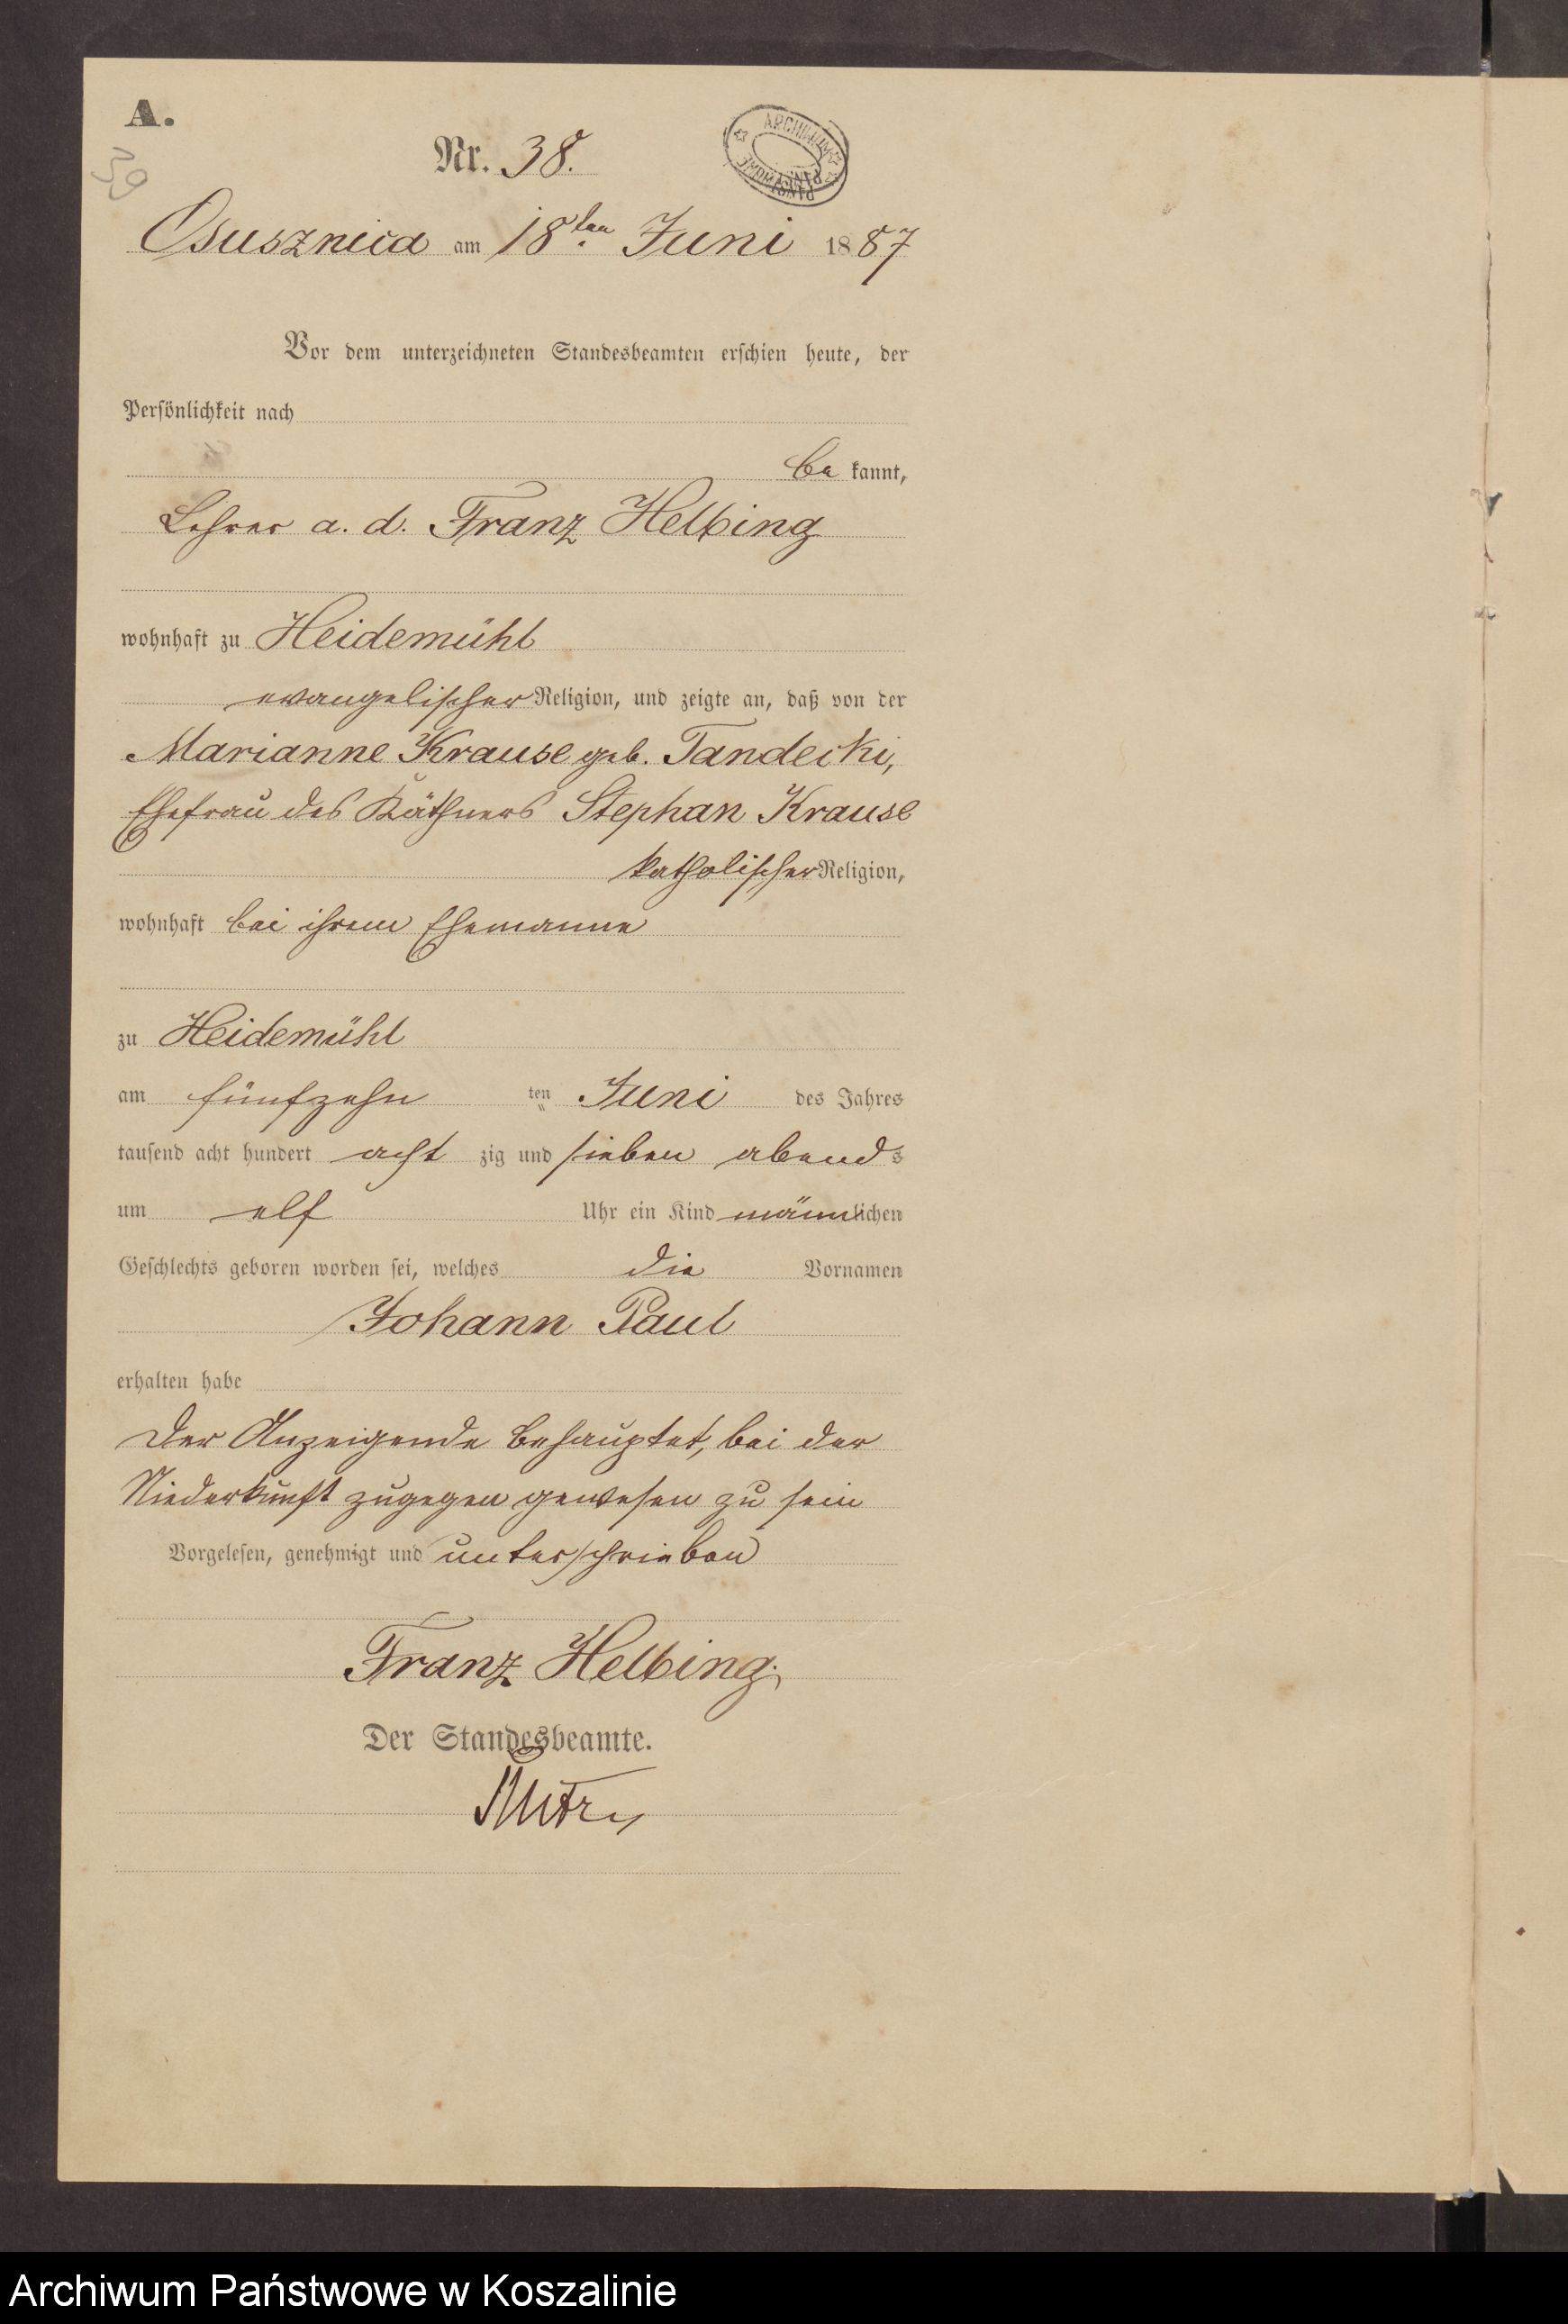 A.
39
Nr. 38.
Osusznica am 18ten Juni 1887
Vor dem unterzeichneten Standesbeamten erschien heute, der
Persönlichkeit nach
be kannt,
Lehrer a. d. Franz Helbing
wohnhaft zu Heidemühl
evangelischer Religion, und zeigte an, daß von der
Marianne Krause geb. Tandecki,
Ehefrau des Käthners Stephan Krause
katholischer Religion,
wohnhaft bei ihrem Ehemanne
zu Heidemühl
am fünfzehn ten Juni des Jahres
tausend acht hundert acht zig und sieben abends
um elf Uhr ein Kind männlichen
Geschlechts geboren worden sei, welches die Vornamen
Johann Paul
erhalten habe
Der Anzeigende behauptet, bei der
Niederkunft zugegen gewesen zu sein
Vorgelesen, genehmigt und unterschrieben
Franz Helbing.
Der Standesbeamte.
Archiwum Państwowe w Koszalinie